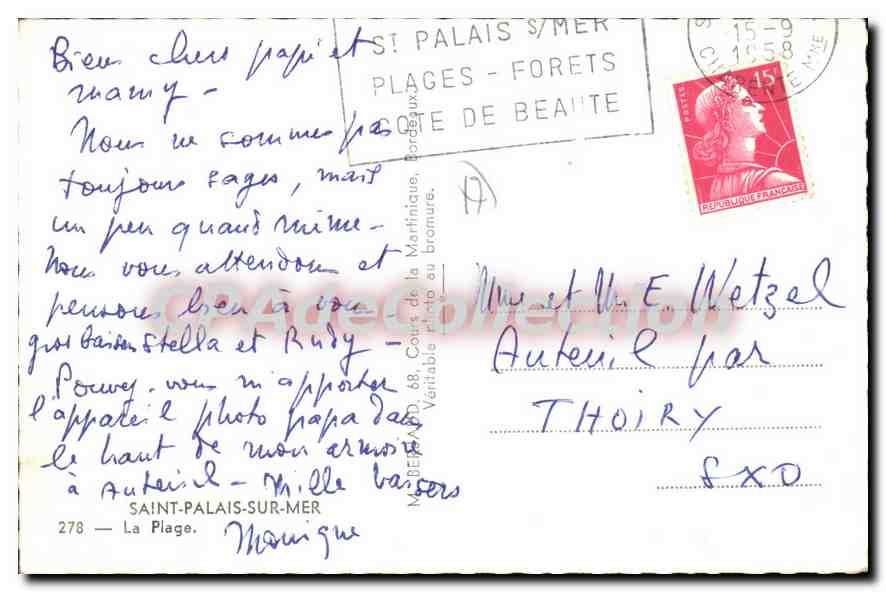 Bien chers papi et
mamy -
Nous ne sommes pas
toujours sages, mais
un peu quand même -
Nous vous attendons et
pensons bien à vous -
gros baisers Stella et Rudy -
Pouvez-vous m'apporter
l'appareil photo papa dans
le haut de mon armoire
à Auteuil - Mille baisers
Monique
SAINT-PALAIS-SUR-MER
278 — La Plage.
ST PALAIS S/MER
PLAGES - FORETS
COTE DE BEAUTE
15-9
1958
CHARENTE MME
POSTES
15F
REPUBLIQUE FRANÇAISE
68, Cours de la Martinique, Bordeaux
Véritable photo au bromure.
Mme et Mr E. Wetzel
Auteuil par
THOIRY
SXO
CPAdeCollection